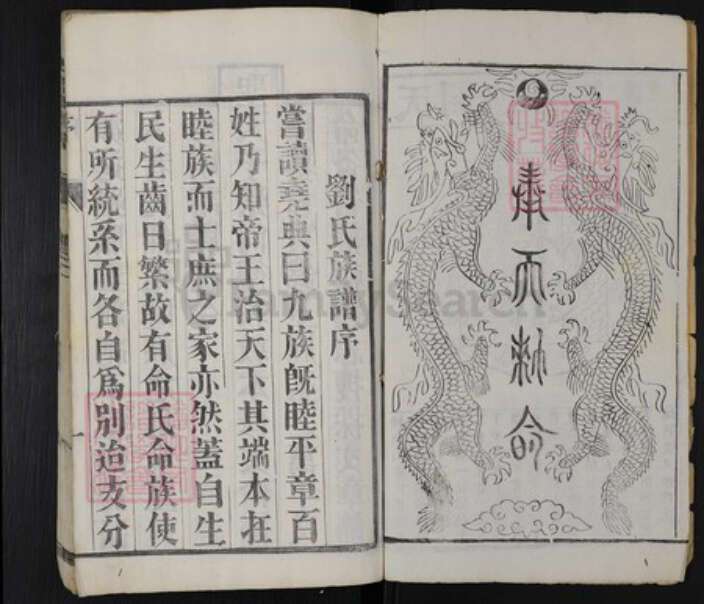 奉天勅命
劉氏族譜序
嘗讀堯典曰九族旣睦平章百
姓乃知帝王治天下其端本在
睦族而士庶之家亦然蓋自生
民生齒日繁故有命氏命族使
有所統系而各自爲別迨支分
一
FamilySearch